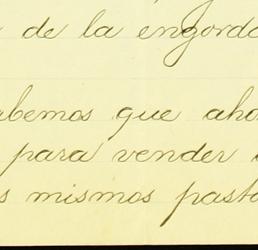 de la engorda
abemos que aho
para vender
s mismos pasto